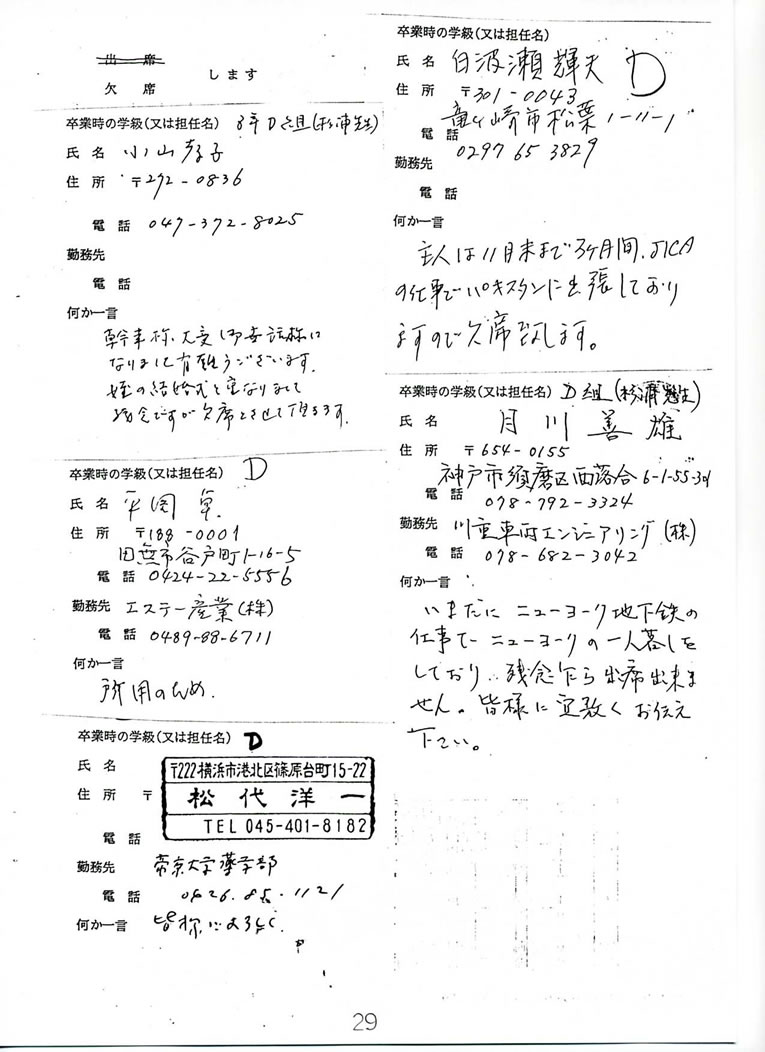 出席
欠席 します
卒業時の学級(又は担任名) 3年D組(杉浦先生)
氏名 小山孝子
住所 〒292-0836
電話 047-372-8025
勤務先
電話
何か一言
幹事様、大変御世話様に
なりまして有難うございます。
姪の結婚式と重なりまして
残念ですが欠席とさせて頂きます。
卒業時の学級(又は担任名) D
氏名 平岡 卓
住所 〒188-0001
田無市谷戸町1-16-5
電話 0424-22-5556
勤務先 エステー産業(株)
電話 0489-88-6711
何か一言
所用のため.
卒業時の学級(又は担任名) D
氏名
住所 〒
電話
〒222横浜市港北区篠原台町15-22
松代洋一
TEL 045-401-8182
勤務先 帝京大学薬学部
電話 0426.85.1121
何か一言 皆様によろしく.
卒業時の学級(又は担任名)
氏名 白波瀬輝夫 D
住所 〒301-0043
竜ヶ崎市松葉1-11-1
電話 0297 65 3829
勤務先
電話
何か一言
主人は11月末まで3ヶ月間、JICA
の仕事でパキスタンに出張しており
ますので欠席致します。
卒業時の学級(又は担任名) D組(杉浦先生)
氏名 月川善雄
住所 〒654-0155
神戸市須磨区西落合6-1-55-301
電話 078-792-3324
勤務先 川重車両エンジニアリング(株)
電話 078-682-3042
何か一言
いまだに ニューヨーク地下鉄の
仕事で ニューヨークの一人暮しを
しており、残念乍ら出席出来ま
せん。皆様に宜敷くお伝え
下さい。
29